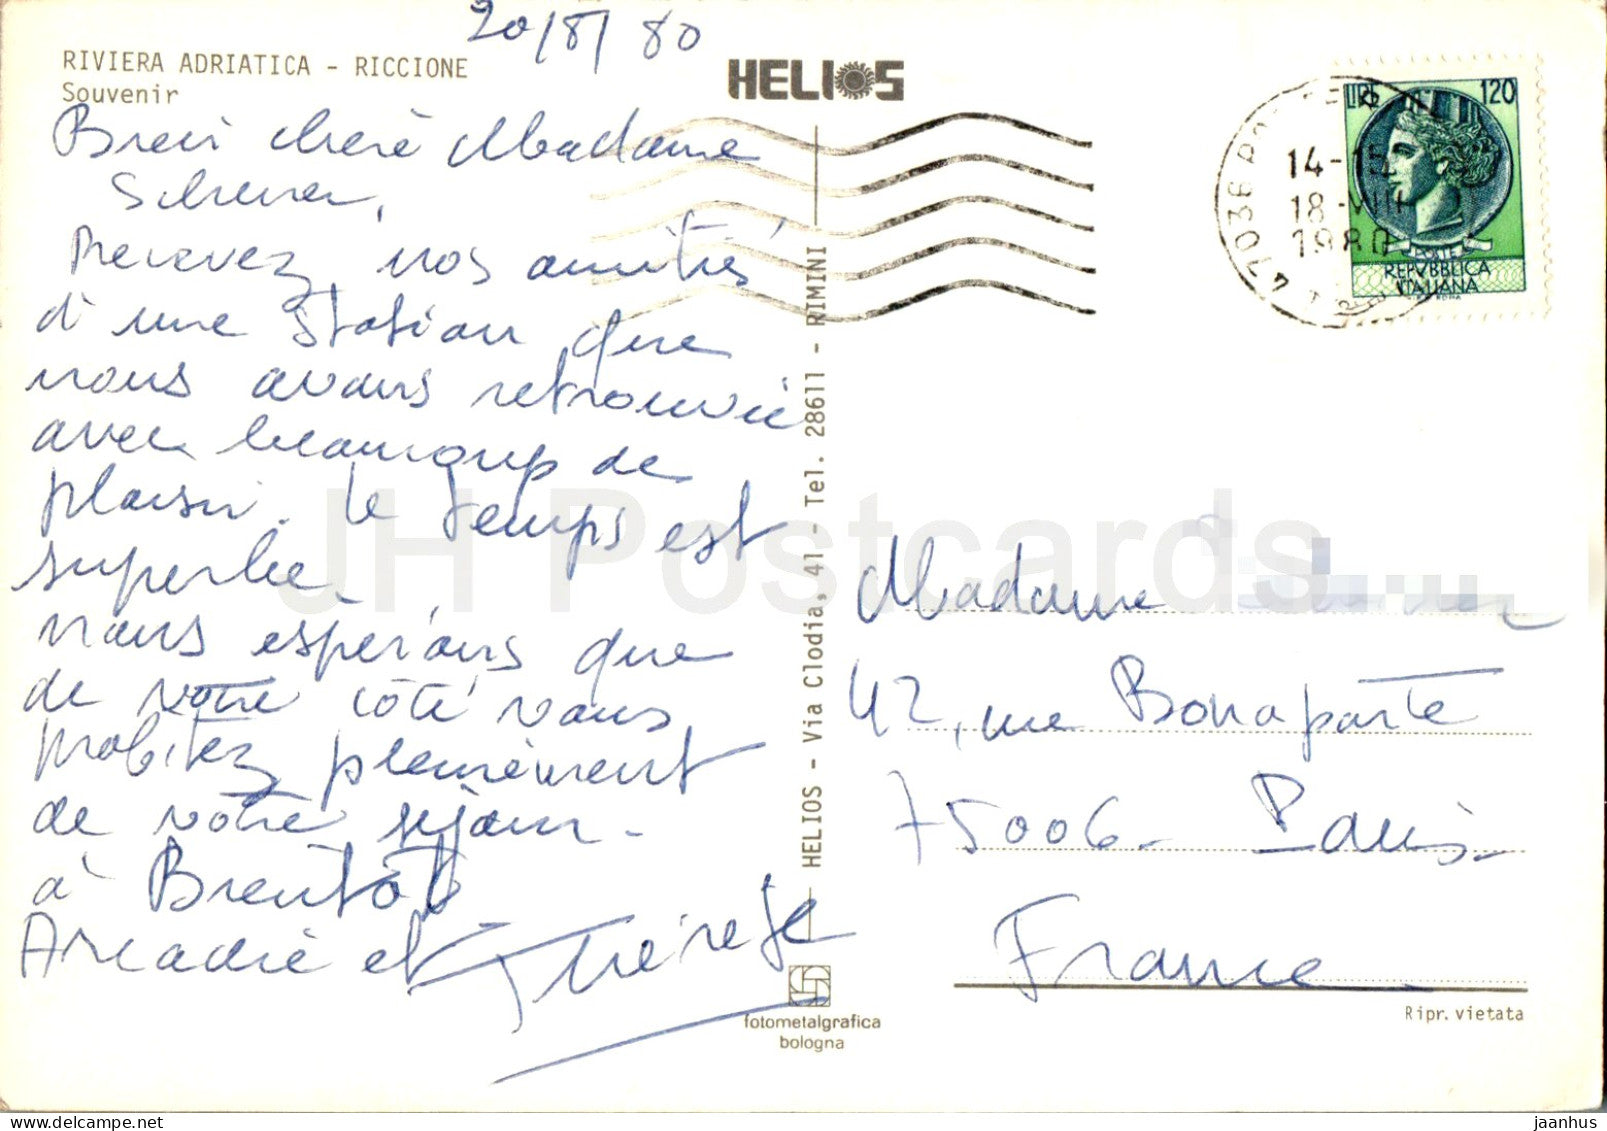 20/8/80
RIVIERA ADRIATICA - RICCIONE
Souvenir
HELIOS
chère Madame
Recevez nos amitiés
d'une station que
nous avons retrouvée
avec beaucoup de
plaisir. Le temps est
superbe.
nous espérons que
de votre côté vous
profitez pleinement
de votre séjour
à
Arcadie et Thérèse
HELIOS - Via Clodia, 41 - Tel. 28611 - RIMINI
fotometalgrafica
bologna
LIRE 120
POSTE
REPVBBLICA
ITALIANA
14-15
18-VIII
1980
Madame
42, rue Bonaparte
75006 - Paris -
France
Ripr. vietata
JH Postcards
delcampe.net
jaanhus